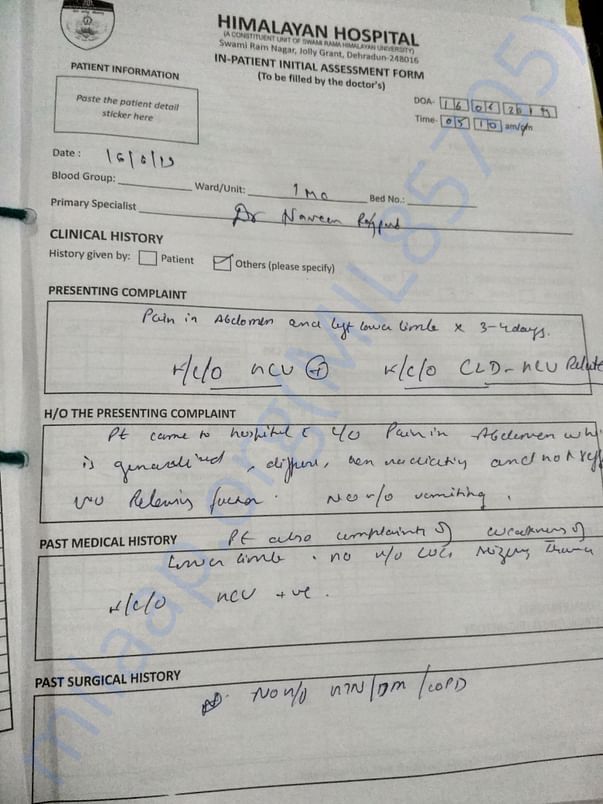 HIMALAYAN HOSPITAL
(A CONSTITUENT UNIT OF SWAMI RAMA HIMALAYAN UNIVERSITY)
Swami Ram Nagar, Jolly Grant, Dehradun-248016
IN-PATIENT INITIAL ASSESSMENT FORM
(To be filled by the doctor's)
PATIENT INFORMATION
Paste the patient detail
sticker here
DOA-
Time- 05 10 am/pm
Date :
Blood Group: Ward/Unit: Bed No.:
Primary Specialist Dr Naveen
CLINICAL HISTORY
History given by: Patient Others (please specify)
PRESENTING COMPLAINT
Pain in Abdomen and left lower limb x 3-4 days.
K/C/O HCV + K/C/O CLD - HCV Relate
H/O THE PRESENTING COMPLAINT
Pt came to hospital c c/o Pain in Abdomen whi
is generalised, diffuse, non radiating and not
Relieving factor. No h/o vomiting.
PAST MEDICAL HISTORY
Pt also complaints of weakness of
Lower limb. no h/o LOC,
K/C/O HCV +ve.
PAST SURGICAL HISTORY
No h/o HTN/DM/COPD
milaap.org(MIL857705)